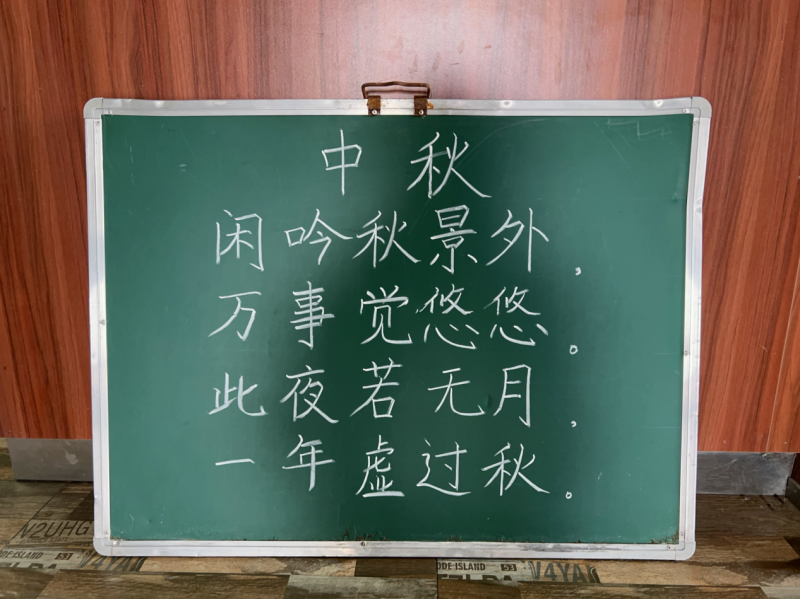 中秋
闲吟秋景外，
万事觉悠悠。
此夜若无月，
一年虚过秋。
N2UHG
ODE ISLAND 53
ODE ISLAND 53
V4YA